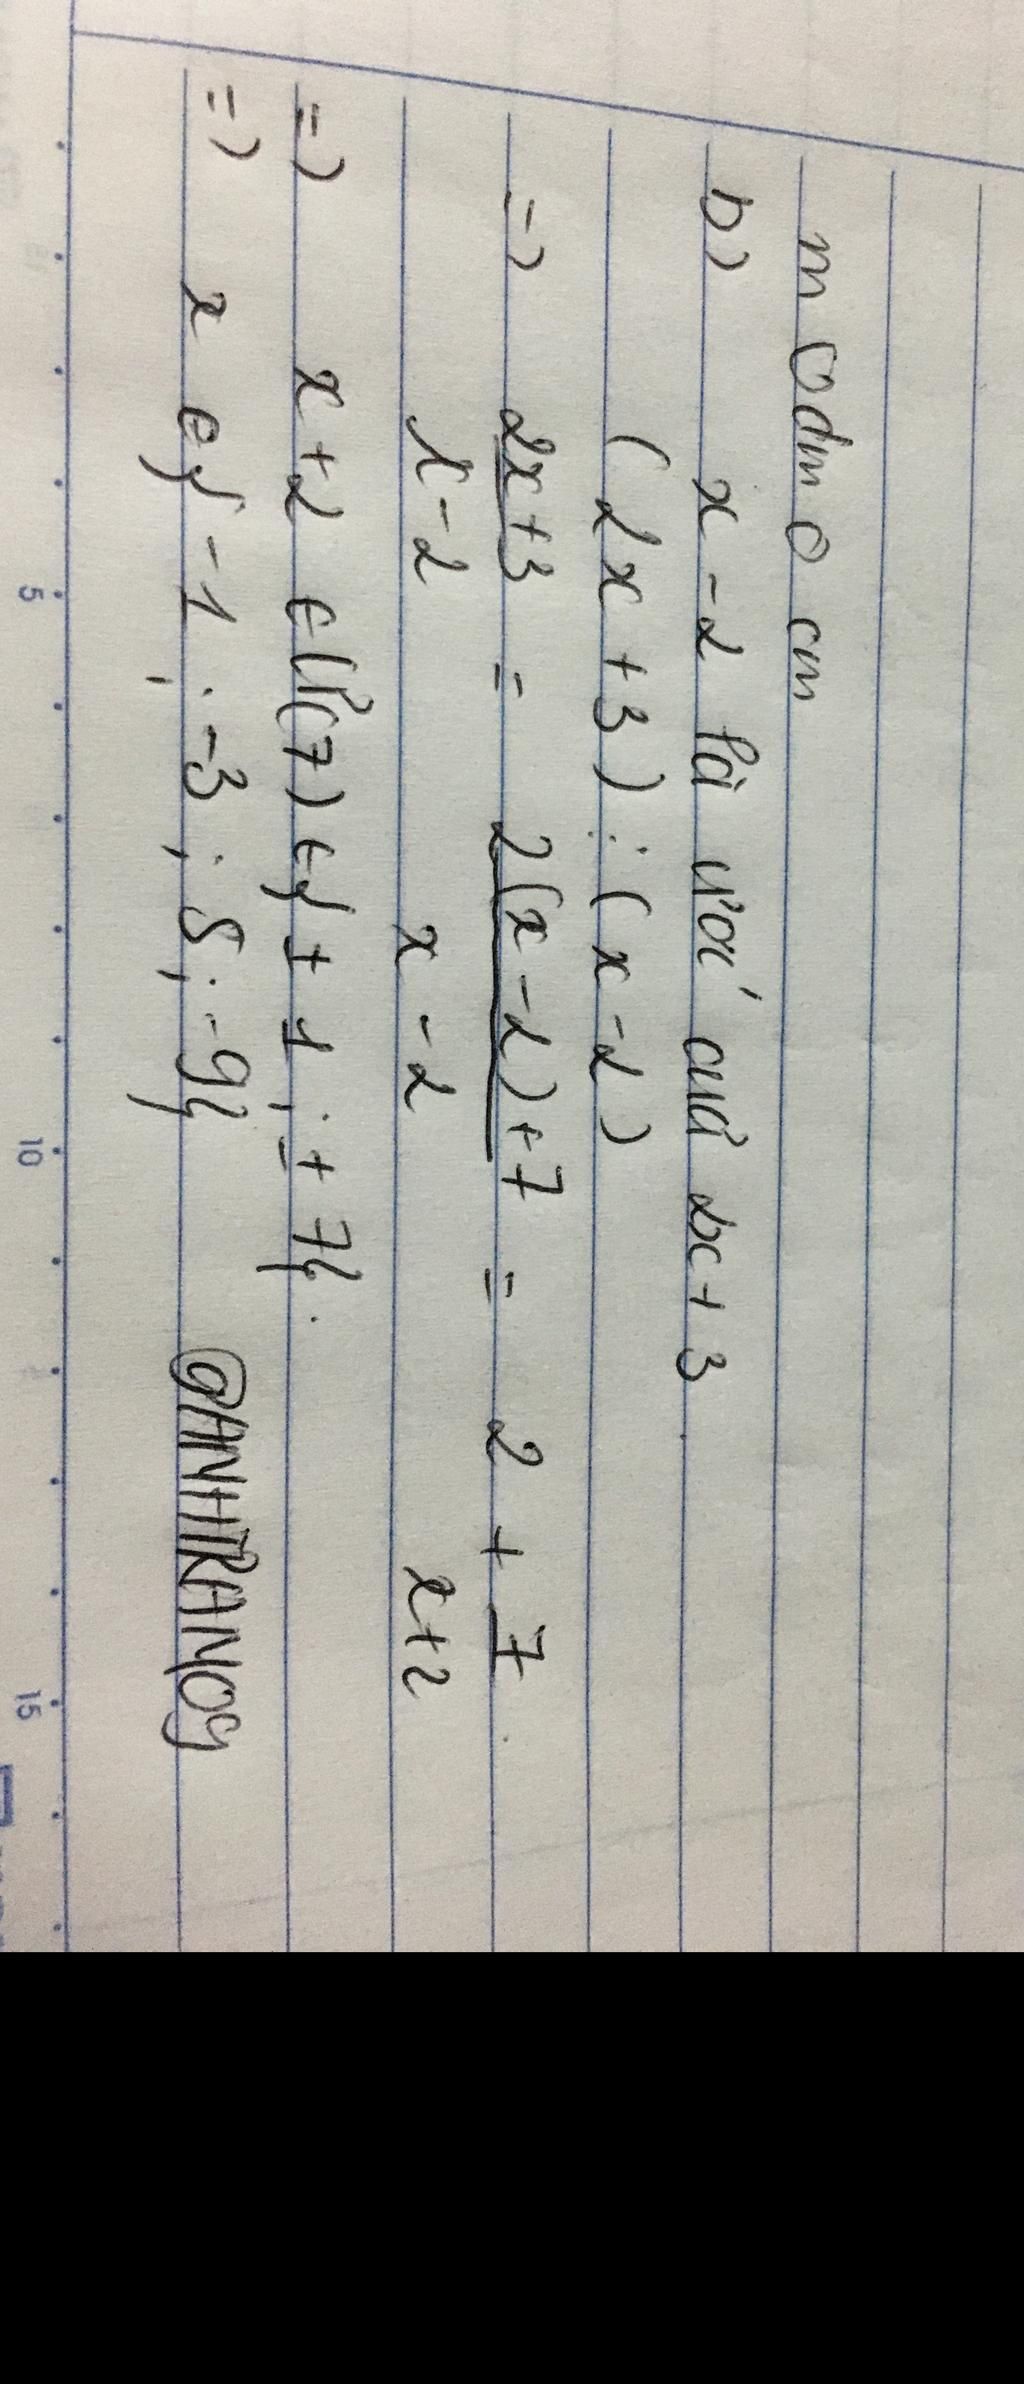 m 0dm 0 cm
b) x - 2 là ước của 2x + 3
(2x + 3) ⋮ (x - 2)
=> 2x + 3 = 2(x - 2) + 7 = 2 + 7
x - 2 x - 2 x + 2
=> x + 2 ∈ Ư(7) ∈ { ± 1 ; ± 7 }.
=> x ∈ { -1 ; -3 ; 5 ; -9 } @ANHTRAN09
5 10 15